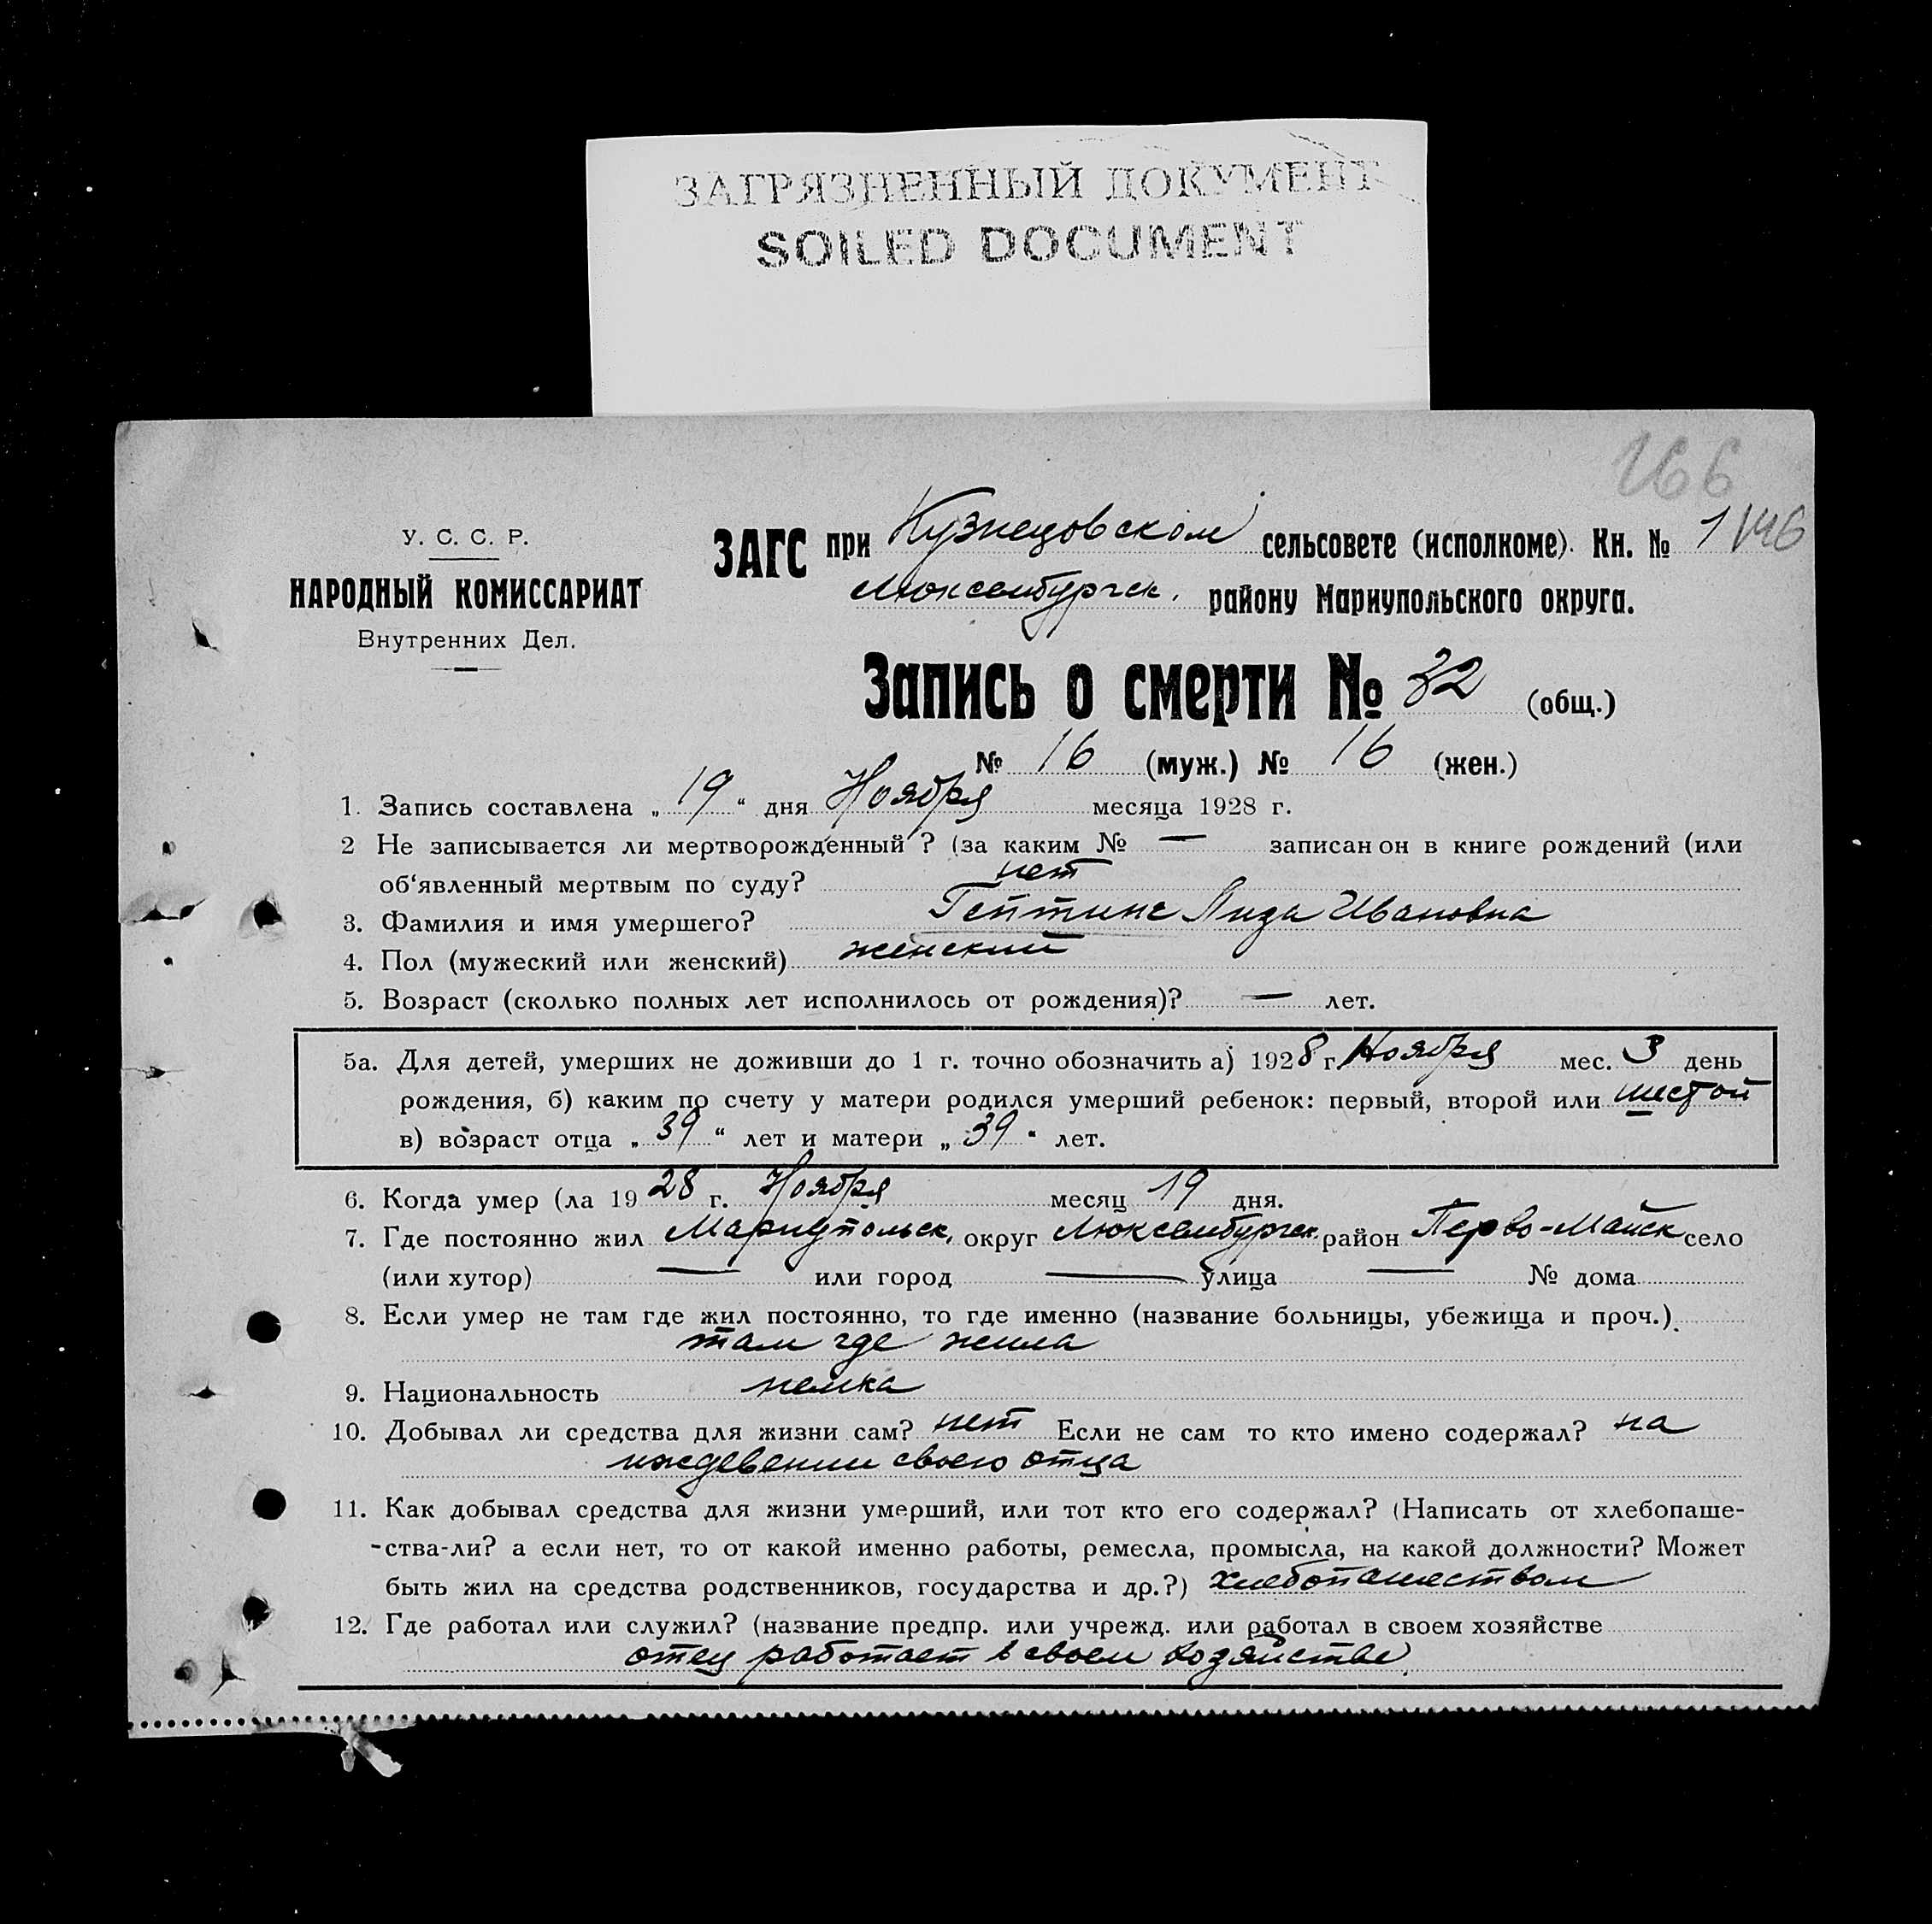 ЗАГРЯЗНЕННЫЙ ДОКУМЕНТ
SOILED DOCUMENT
166
У. С. С. Р.
НАРОДНЫЙ КОМИССАРИАТ
Внутренних Дел.
ЗАГС при Кузнецовском сельсовете (исполкоме). Кн. № 1 146
Люксенбургск. району Мариупольского округа.
Запись о смерти № 32 (общ.)
№ 16 (муж.) № 16 (жен.)
1. Запись составлена „ 19 “ дня Ноября месяца 1928 г.
2 Не записывается ли мертворожденный ? (за каким № — записан он в книге рождений (или
об‘явленный мертвым по суду? нет
3. Фамилия и имя умершего? Гептинг Лиза Ивановна
4. Пол (мужеский или женский) женский
5. Возраст (сколько полных лет исполнилось от рождения)? — лет.
5а. Для детей, умерших не доживши до 1 г. точно обозначить а) 1928 г. Ноября мес. 3 день
рождения, б) каким по счету у матери родился умерший ребенок: первый, второй или шестой
в) возраст отца „ 39 “ лет и матери „ 39 “ лет.
6. Когда умер (ла 1928 г. Ноября месяц 19 дня.
7. Где постоянно жил Мариупольск. округ Люксенбургск. район Перво-Майск село
(или хутор) — или город — улица — № дома
8. Если умер не там где жил постоянно, то где именно (название больницы, убежища и проч.).
там где жила
9. Национальность немка
10. Добывал ли средства для жизни сам? нет Если не сам то кто имено содержал? на
иждевении своего отца
11. Как добывал средства для жизни умерший, или тот кто его содержал? (Написать от хлебопаше-
-ства-ли? а если нет, то от какой именно работы, ремесла, промысла, на какой должности? Может
быть жил на средства родственников, государства и др.?) хлебопашеством
12. Где работал или служил? (название предпр. или учрежд. или работал в своем хозяйстве
отец работает в своем хозяйстве